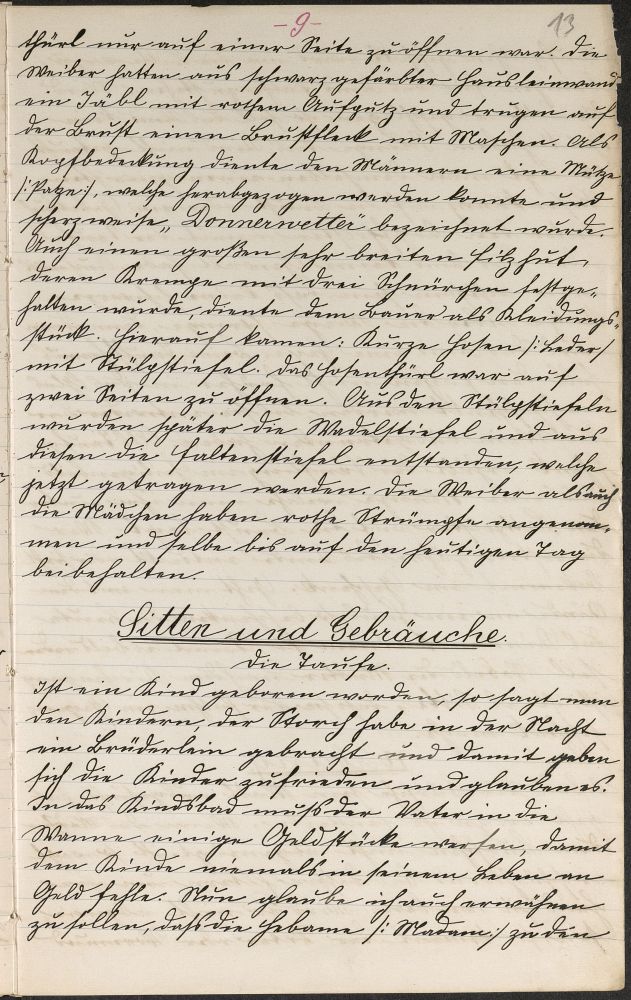 -9-
13
thürl nur auf einer Seite zu öffnen war. Die
Weiber hatten aus schwarz gefärbter Hausleinwand
ein Jäbl mit rothem Aufputz und trugen auf
der Brust einen Brustfleck mit Maschen. Als
Kopfbedeckung diente den Männern eine Mütze
/:Patze:/, welche herabgezogen werden konnte und
scherzweise „Donnerwetter" bezeichnet wurde.
Auch einen großen sehr breiten Filzhut,
deren Krempe mit drei Schnürchen festge„
halten wurde, diente dem Bauer als Kleidungs„
stück. Hierauf kamen: Kurze Hosen /:Leder/
mit Stülpstiefel. Das Hosenthürl war auf
zwei Seiten zu öffnen. Aus den Stülpstiefeln
wurden später die Wadelstiefel und aus
diesen die Faltenstiefel entstanden, welche
jetzt getragen werden. Die Weiber als auch
die Mädchen haben rothe Strümpfe angenom„
men und selbe bis auf den heutigen Tag
beibehalten.
Sitten und Gebräuche.
Die Taufe.
Ist ein Kind geboren worden, so sagt man
den Kindern, der Storch habe in der Nacht
ein Brüderlein gebracht und damit geben
sich die Kinder zufrieden und glauben es.
In das Kindsbad muss der Vater in die
Wanne einige Geldstücke werfen, damit
dem Kinde niemals in seinem Leben an
Geld fehle. Nun glaube ich auch erwähnen
zu sollen, dass die Hebame /:Madam:/ zu den